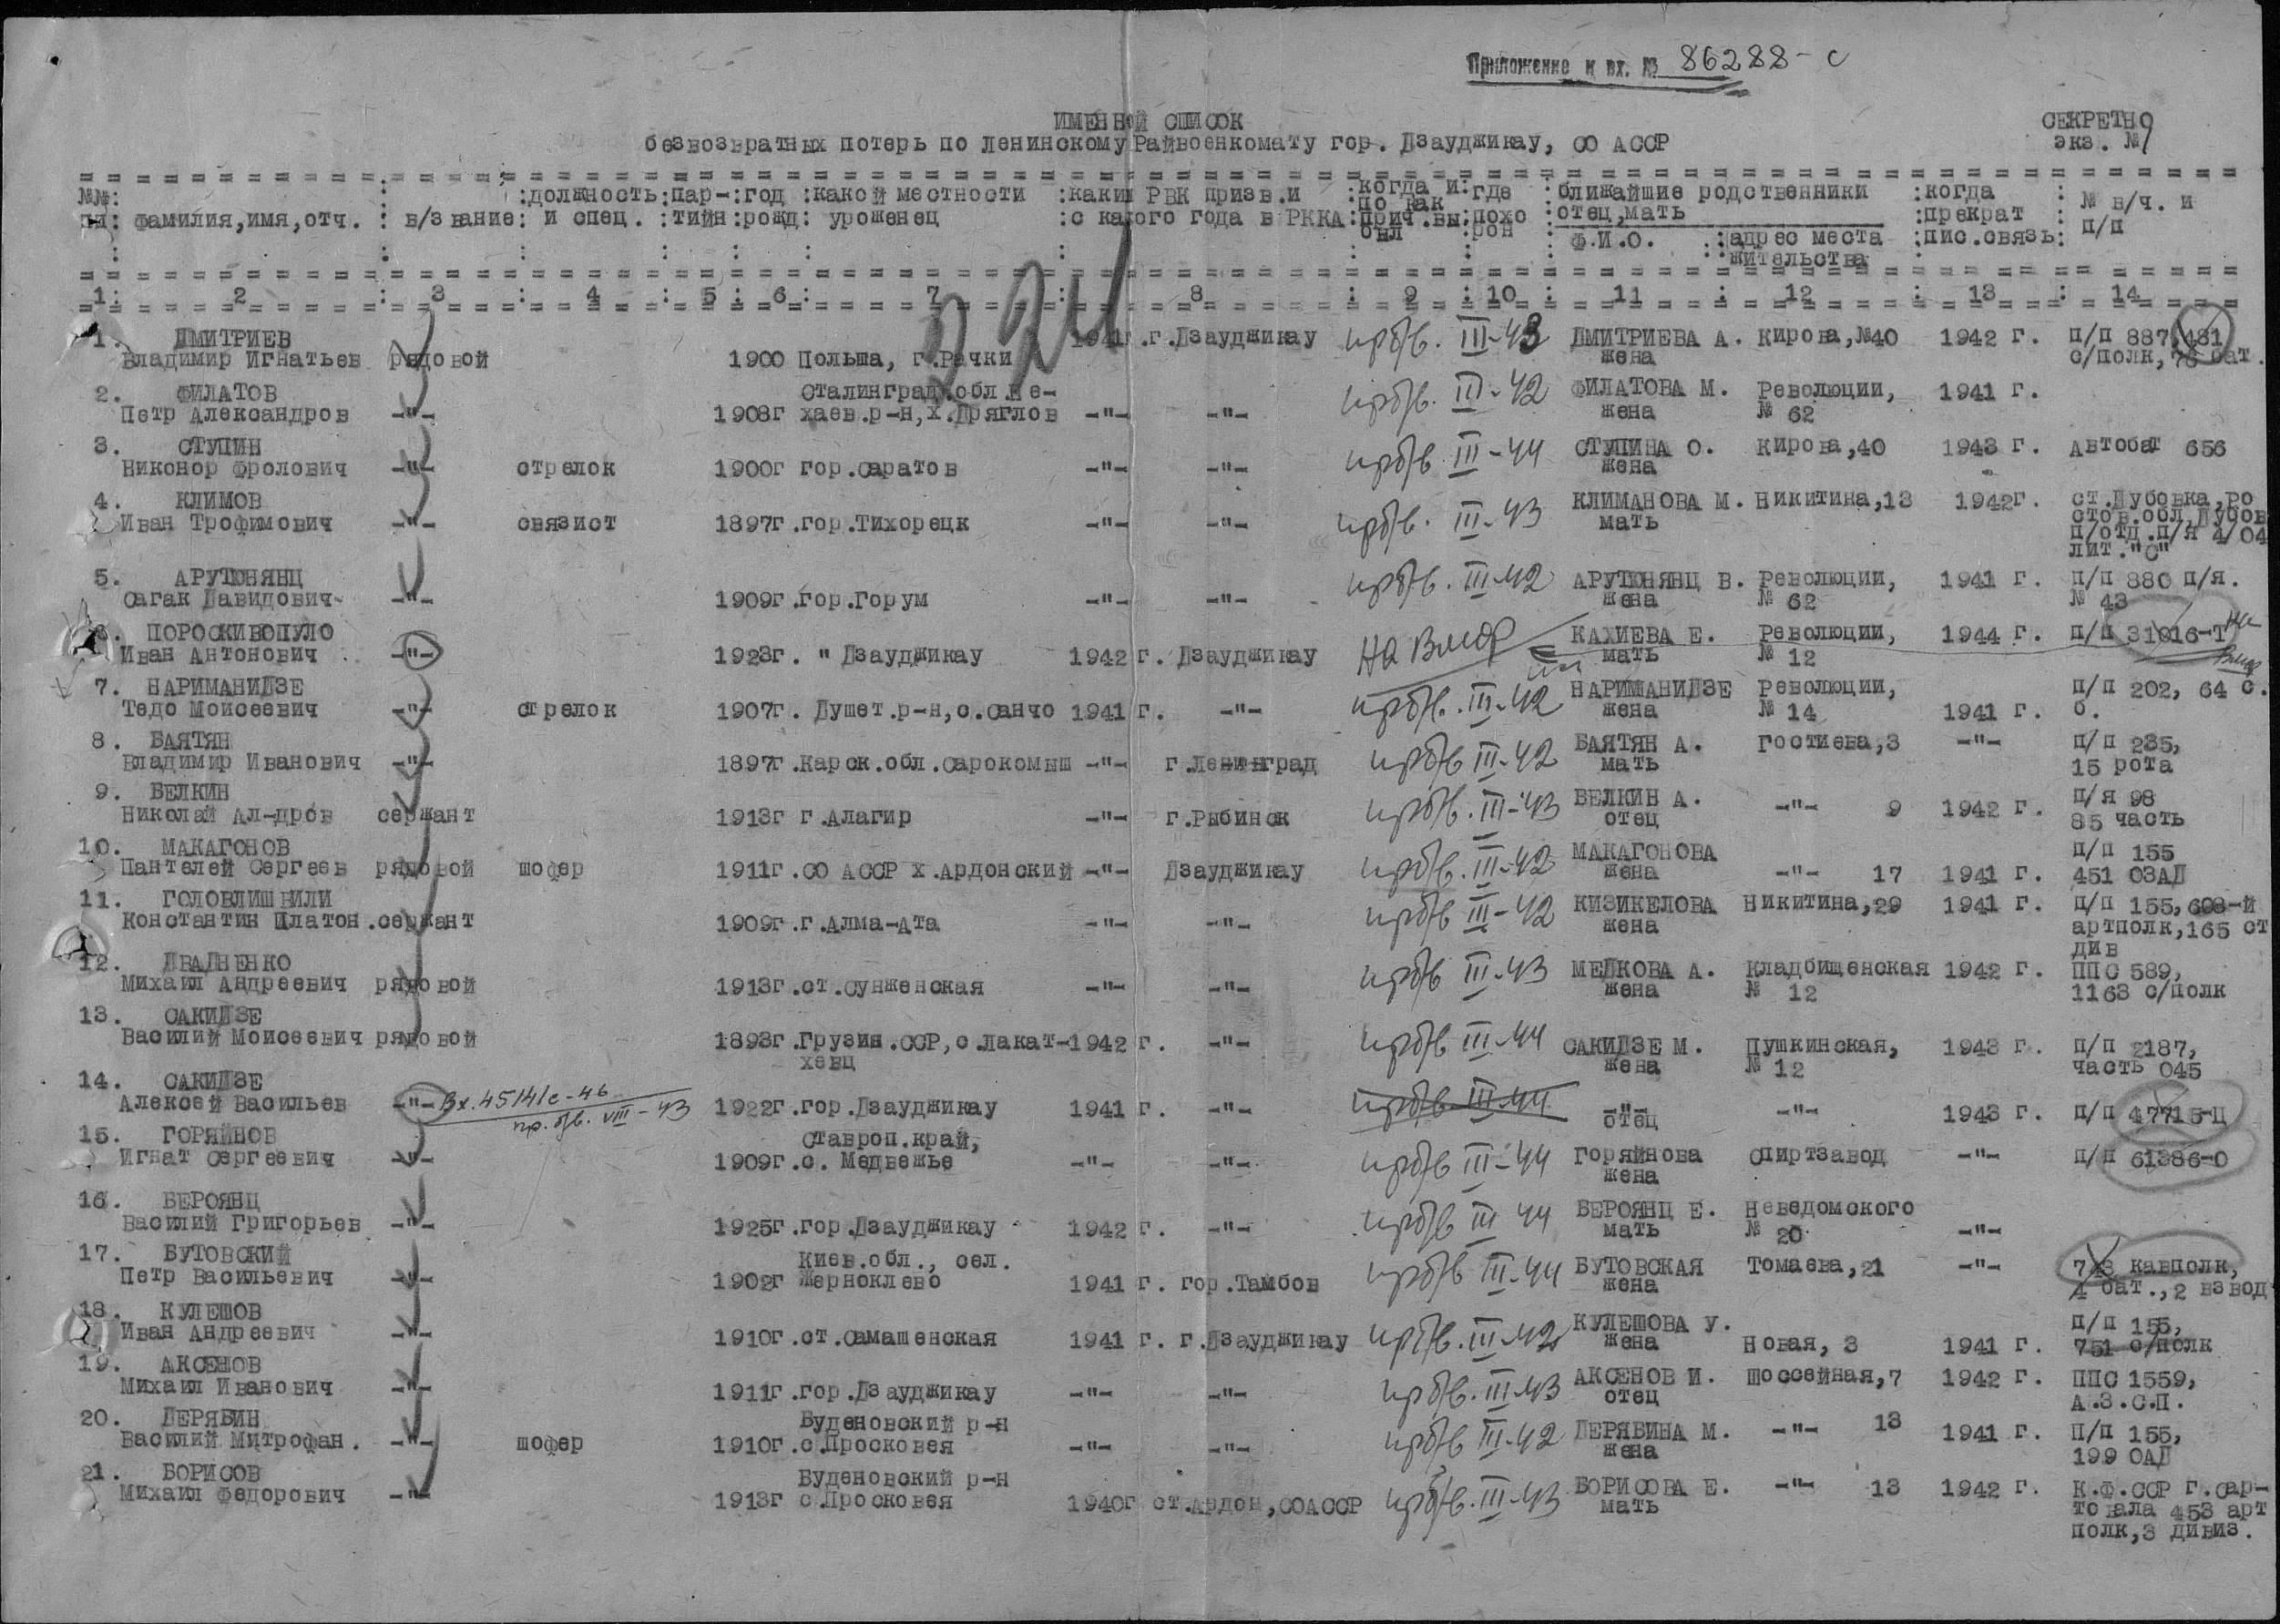 Приложение к вх. № 86288-с
ИМЕННОЙ СПИСОК
СЕКРЕТНО
безвозвратных потерь по Ленинскому Райвоенкомату гор. Дзауджикау, СО АССР
экз. №
№№ : : :должность:пар-:год :какой местности :каким РВК призв.и :когда и:где :ближайшие родственники :когда : № в/ч. и
пп: фамилия,имя,отч. : в/звание: и спец. :тийн:рожд: уроженец :с какого года в РККА:по как прич.вы:похо :отец,мать :прекрат : п/п
был :рон : Ф.И.О. :адрес места :пис.связь:
жительства
1: 2 : 3 : 4 : 5 : 6 : 7 : 8 : 9 : 10 : 11 : 12 : 13 : 14
224
1. ДМИТРИЕВ 1941г.г.Дзауджикау пр б/в. III-43 ДМИТРИЕВА А. Кирова,№40 1942 г. п/п 887,481
Владимир Игнатьев рядовой 1900 Польша, г.Рачки жена с/полк,76 бат.
2. ФИЛАТОВ Сталинград.обл.Не- пр б/в. III-42 ФИЛАТОВА М. Революции, 1941 г.
Петр Александров -"- 1908г хаев.р-н,х.Дряглов -"- -"- жена № 62
3. СТУПИН пр б/в III-44 СТУПИНА О. Кирова,40 1943 г. Автобат 656
Никонор Фролович -"- стрелок 1900г гор.Саратов -"- -"- жена
4. КЛИМОВ пр б/в. III-43 КЛИМАНОВА М. Никитина,13 1942г. ст.Дубовка,Ро
Иван Трофимович -"- связист 1897г.гор.Тихорецк -"- -"- мать стов.обл,Дубов
п/отд.п/я 4/04
лит."С"
5. АРУТЮНЯНЦ пр б/в. III-42 АРУТЮНЯНЦ В. Революции, 1941 г. п/п 880 п/я.
Сагак Давидович -"- 1909г.гор.Горум -"- -"- жена № 62 № 43
6. ПОРОСКИВОПУЛО на Вмор КАХИЕВА Е. Революции, 1944 г. п/п 31016-Т на Вмор
Иван Антонович -"- 1923г. " Дзауджикау 1942 г. Дзауджикау мать № 12
7. НАРИМАНИДЗЕ пр б/в. III-42 НАРИМАНИДЗЕ Революции, п/п 202, 64 с.
Тедо Моисеевич -"- стрелок 1907г. Душет.р-н,с.Санчо 1941 г. -"- жена № 14 1941 г. б.
8. БАЯТЯН пр б/в III-42 БАЯТЯН А. Гостиева,3 -"- п/п 235,
Владимир Иванович -"- 1897г.Карск.обл.Сарокомыш -"- г.Ленинград мать 15 рота
9. БЕЛКИН пр б/в. III-43 БЕЛКИН А. -"- 9 1942 г. п/я 98
Николай Ал-дров сержант 1913г г.Алагир -"- г.Рыбинск отец 85 часть
10. МАКАГОНОВ пр б/в. III-42 МАКАГОНОВА п/п 155
Пантелей Сергеев рядовой шофер 1911г.СО АССР х.Ардонский -"- Дзауджикау жена -"- 17 1941 г. 451 ОЗАД
11. ГОЛОВЛИШВИЛИ пр б/в III-42 КИЗИКЕЛОВА Никитина,29 1941 г. п/п 155,608-й
Константин Платон.сержант 1909г.г.Алма-Ата -"- -"- жена артполк,165 ст
див
12. ДВАДНЕНКО пр б/в III-43 МЕЛКОВА А. Кладбищенская 1942 г. ППС 589,
Михаил Андреевич рядовой 1913г.ст.Сунженская -"- -"- жена № 12 1163 с/полк
13. САКИДЗЕ пр б/в III-44 САКИДЗЕ М. Пушкинская, 1943 г. п/п 2187,
Василий Моисеевич рядовой 1893г.Грузин.ССР,с.Лакат-1942 г. -"- жена № 12 часть 045
хевц
14. САКИДЗЕ Вх.45141с-46 пр б/в III-44
Алексей Васильев -"- пр. б/в. VIII-43 1922г.гор.Дзауджикау 1941 г. -"- -"- отец -"- 1943 г. п/п 47715-Ц
15. ГОРЯЙНОВ Ставроп.край, пр б/в III-44 ГОРЯЙНОВА Спиртзавод -"- п/п 61386-О
Игнат Сергеевич -"- 1909г.с. Медвежье -"- -"- жена
16. БЕРОЯНЦ пр б/в III 44 БЕРОЯНЦ Е. Неведомского
Василий Григорьев -"- 1925г.гор.Дзауджикау 1942 г. -"- мать № 20 -"-
17. БУТОВСКИЙ Киев.обл., сел. пр б/в III-44 БУТОВСКАЯ Томаева,21 -"- 713 кавполк,
Петр Васильевич -"- 1902г Жерноклево 1941 г. гор.Тамбов жена 4 бат.,2 взвод
18. КУЛЕШОВ пр б/в. III-42 КУЛЕШОВА У. п/п 155,
Иван Андреевич -"- 1910г.ст.Самашенская 1941 г. г.Дзауджикау жена Новая, 3 1941 г. 751 с/полк
19. АКСЕНОВ пр б/в. III-43 АКСЕНОВ И. Шоссейная,7 1942 г. ППС 1559,
Михаил Иванович -"- 1911г.гор.Дзауджикау -"- -"- отец А.З.С.П.
20. ДЕРЯБИН Буденовский р-н пр б/в III-42 ДЕРЯБИНА М. -"- 13 1941 г. п/п 155,
Василий Митрофан. -"- шофер 1910г.с.Просковея -"- -"- жена 199 ОАД
21. БОРИСОВ Буденовский р-н пр б/в. III-43 БОРИСОВА Е. -"- 13 1942 г. К.Ф.ССР г.Сар-
Михаил Федорович -"- 1913г с.Просковея 1940г ст.Ардон,СОАССР мать товала 453 арт
полк,3 дивиз.